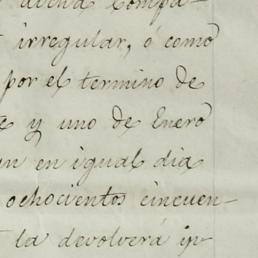 dicha Compa-
irregular, ó como
por el termino de
y uno de Enero
en igual dia
ochocientos cincuen-
la devolverá in-